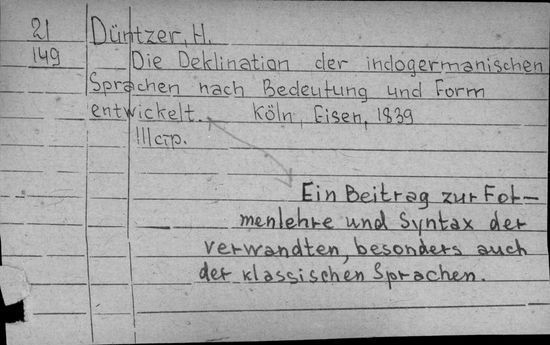 21
149
Düntzer, H.
Die Deklination der indogermanischen
Sprachen nach Bedeutung und Form
entwickelt. Köln, Eisen, 1839
111 стр.
Ein Beitrag zur For-
menlehre und Syntax der
verwandten, besonders auch
der klassischen Sprachen.